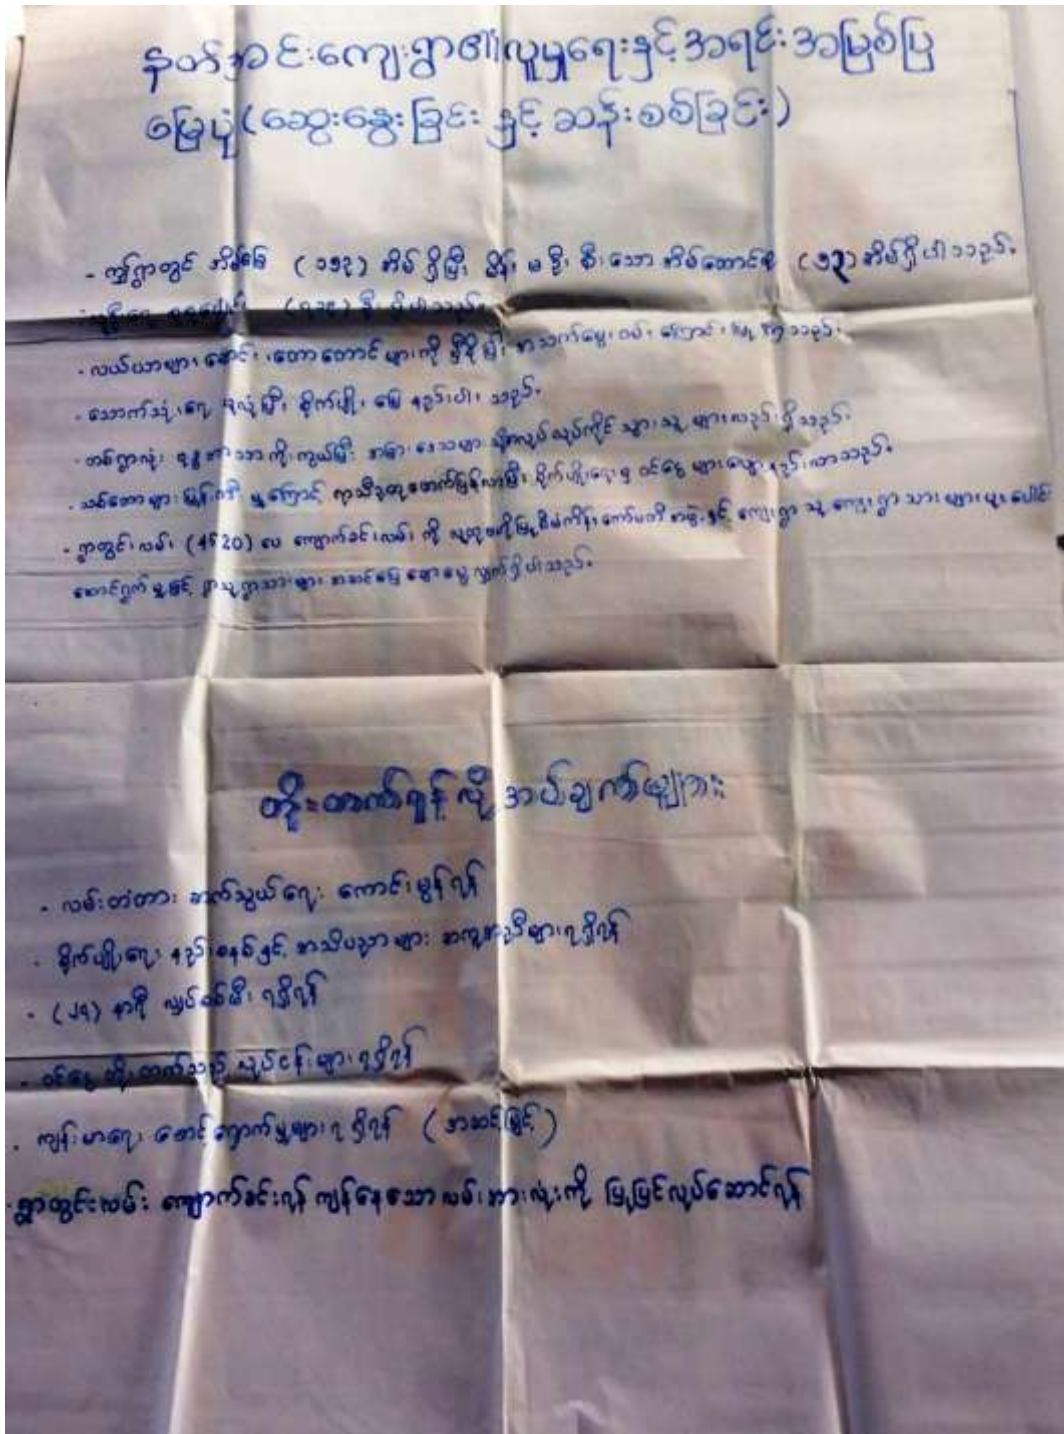 နတ်အင်းကျေးရွာ၏လူမှုရေးနှင့်အရင်းအမြစ်ပြ
မြေပုံ(ဆွေးနွေးခြင်း နှင့် ဆန်းစစ်ခြင်း)
- ကျွန်ုပ်ရွာတွင် အိမ်ခြေ အိမ် ရှိပြီး မိန်း မ ဦး စီး သော အိမ်ထောင်စု အိမ်ရှိပါသည်။
ဦး ရှိပါသည်။
- လယ်ယာများ၊ ချောင်း၊ တောတောင်များကို မှီခိုပြီး အသက်မွေး ဝမ်း ကြောင်း ပြုကြသည်။
- သောက်သုံးရေ ခုလုံပြီး စိုက်ပျိုး မြေ နည်းပါး သည်။
- တစ်ရွာလုံး ဗုဒ္ဓဘာသာ ကိုးကွယ်ပြီး အခြား ဒေသများ သို့အလုပ် လုပ်ကိုင် သွား သူ များလည်း ရှိသည်။
- သစ်တောများ ပြုန်းတီး မှုကြောင့် ရာသီဥတုဖောက်ပြန်လာပြီး စိုက်ပျိုးရေးမှ ဝင်ငွေ များလျော့နည်းလာသည်။
- ရွာတွင်းလမ်း (4520) ပေ ကျောက်ခင်းလမ်း ကို လူထုဗဟိုပြုစီမံကိန်း ကော်မတီ အဖွဲ့နှင့် ကျေးရွာ သူ ကျေးရွာ သားများပူးပေါင်း
ဆောင်ရွက် မှုဖြင့် ရွာသူရွာသားများ အဆင်ပြေ ချောမွေ့ လျက်ရှိပါသည်။
တိုးတက်ရန် လို အပ်ချက်များ
- လမ်းတံတား ဆက်သွယ်ရေး ကောင်းမွန်ရန်
- စိုက်ပျိုးရေး နည်းစနစ်နှင့် အသိပညာများ အကူအညီများရရှိရန်
- (၂၄) နာရီ လျှပ်စစ်မီး ရရှိရန်
- ဝင်ငွေ တိုးတက်သည့် လုပ်ငန်းများရရှိရန်
- ကျန်းမာရေး စောင့်ရှောက်မှုများရရှိရန် (အဆင့်မြင့်)
- ရွာတွင်းလမ်း ကျောက်ခင်းရန် ကျန်နေသော လမ်းအားလုံးကို ပြုပြင်လုပ်ဆောင်ရန်